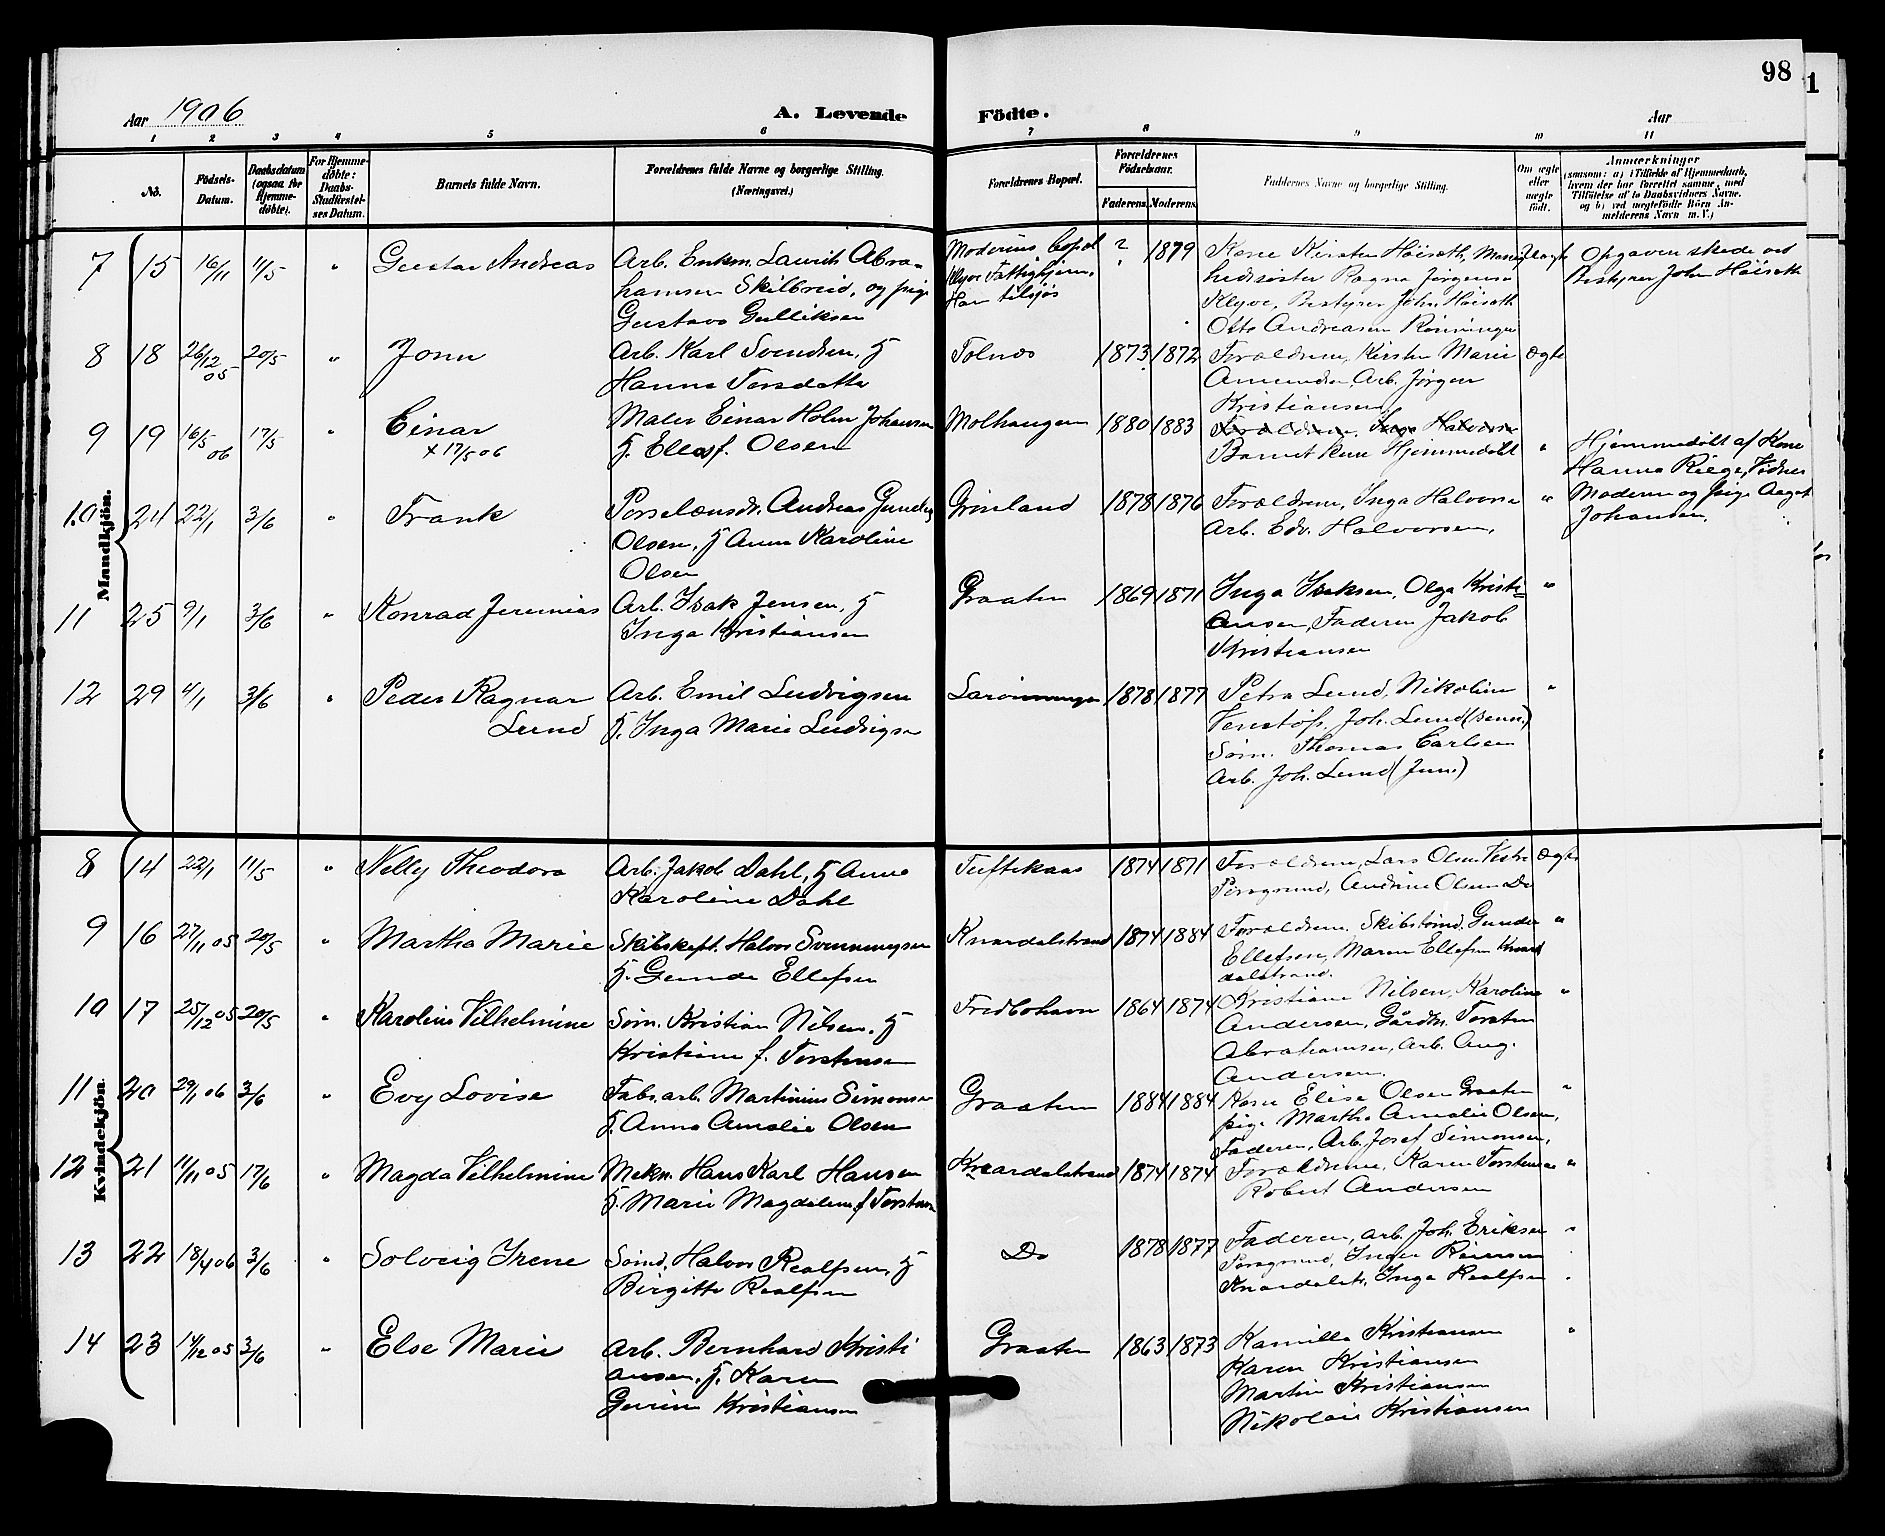 98
Aar 1906
A. Levende Födte.
Aar
1 2 3 4 5 6 7 8 9 10 11
No.
Födsels-Datum.
Daabsdatum (ogsaa for Hjemme-döbte).
For Hjemme-döbte: Daabs-Stadfæstel-ses Datum.
Barnets fulde Navn.
Forældrenes fulde Navne og borgerlige Stilling. (Næringsvei.)
Forældrenes Bopæl.
Forældrenes Födselsaar.
Faderens. Moderens.
Faddernes Navne og borgerlige Stilling.
Om ægte eller uægte födt.
Anmærkninger
(saasom: a) i Tilfælde af Hjemmedaab, hvem der har forrettet samme, med Tilföielse af to Daabsvidners Navne, og b) ved uægtefödte Börn An-melderens Navn m. V.)
Mandkjön.
7 15 16/1 11/5 " Gustav Andreas
Arb. Enkm. Laurits Abra-
hamsen Skilbreid, og pige
Gustava Gulliksen
Moderens Bopæl
Klyve Fattighjem.
Han tilsjøs
? 1879
Kone Kirsten Höiseth,
Ragna Jörgensen
Klyve, Bestyrer John Höiseth
Otto Andreasen Rönningen
Uægte
Opgaven skede ved
Bestyrer John Höiseth
8 18 26/12 05 20/5 " John
Arb. Karl Svendsen, H
Hanna Torsdatter
Tolnæs 1873 1872
Forældrene, Kirsten Marie
Amundsen, Arb. Jörgen
Kristiansen
Ægte
9 19 16/5 06 17/5 " Einar
+ 17/5 06
Maler Einar Holm Johansen
H. Ella f. Olsen
Molhaugen 1880 1883
Forældrene, Inga Halvorsen
Barnet kun Hjemmedöbt "
Hjemmedöbt af Kone
Hanna Riege, Vidner
Moderen og pige Aagot
Johansen.
10 24 22/1 3/6 " Frank
Porselænsdr. Andreas Gunelius
Olsen, H Anna Karoline
Olsen
Grinland 1878 1876
Forældrene, Inga Halvorsen
Arb. Edv. Halvorsen. "
11 25 9/1 3/6 " Konrad Jeremias
Arb. Isak Jensen, H
Inga Kristiansen
Graaten 1869 1871
Inga Isaksen, Olga Kristi-
ansen, Faderen Jakob
Kristiansen "
12 29 4/1 3/6 " Peder Ragnar
Lund
Arb. Emil Ludvigsen
H. Inga Marie Ludvigsen
Larönningen 1878 1877
Petra Lund, Nikoline
Venstöp, Joh. Lund (sen.)
Söm. Thomas Carlsen
Arb. Joh. Lund (Jun.) "
Kvindekjön.
8 14 22/1 11/5 " Nelly Theodora
Arb. Jakob Dahl, H Anna
Karoline Dahl
Tuftekaas 1874 1871
Forældrene, Lars Olsen Vestre
Porsgrund, Andrine Olsen Do
Ægte
9 16 27/11 05 20/5 " Martha Marie
Skibskapt. Halvor Svenningsen
H. Gunda Ellefsen
Knardalstrand 1874 1884
Forældrene. Skibstömd. Gunder
Ellefsen, Maren Ellefsen Knar-
dalstrand. "
10 17 25/12 05 20/5 " Karoline Vilhelmine
Söm. Kristian Nilsen, H
Kristiane f. Torstensen
Fredbohavn 1864 1874
Kristiane Nilsen, Karoline
Andersen, Gårdbr. Torsten
Abrahamsen, Arb. Aug.
Andersen. "
11 20 29/1 06 3/6 " Evy Lovise
Fabr.arb. Martinius Simonsen
H. Anna Amalie Olsen
Graaten 1884 1884
Kone Elise Olsen Graaten
pige Martha Amalie Olsen,
Faderen, Arb. Josef Simonsen, "
12 21 11/11 05 17/6 " Magda Vilhelmine
Mekn. Hans Karl Hansen
H. Marie Magdalene f Torstensen
Knardalstrand 1874 1874
Forældrene, Karen Torstensen
Robert Andersen "
13 22 18/4 06 3/6 " Solveig Irene
Sömd. Halvor Realfsen, H
Birgitte Realfsen
Do 1878 1877
Faderen, arb. Joh. Eriksen
Porsgrund, Inger
Knardalst, Inga Realfsen "
14 23 14/12 05 3/6 " Else Marie
Arb. Bernhard Kristi
ansen, H. Karen
Gurine Kristiansen
Graaten 1863 1873
Kamilla Kristiansen
Karen Kristiansen
Martin Kristiansen
Nikolai Kristiansen "